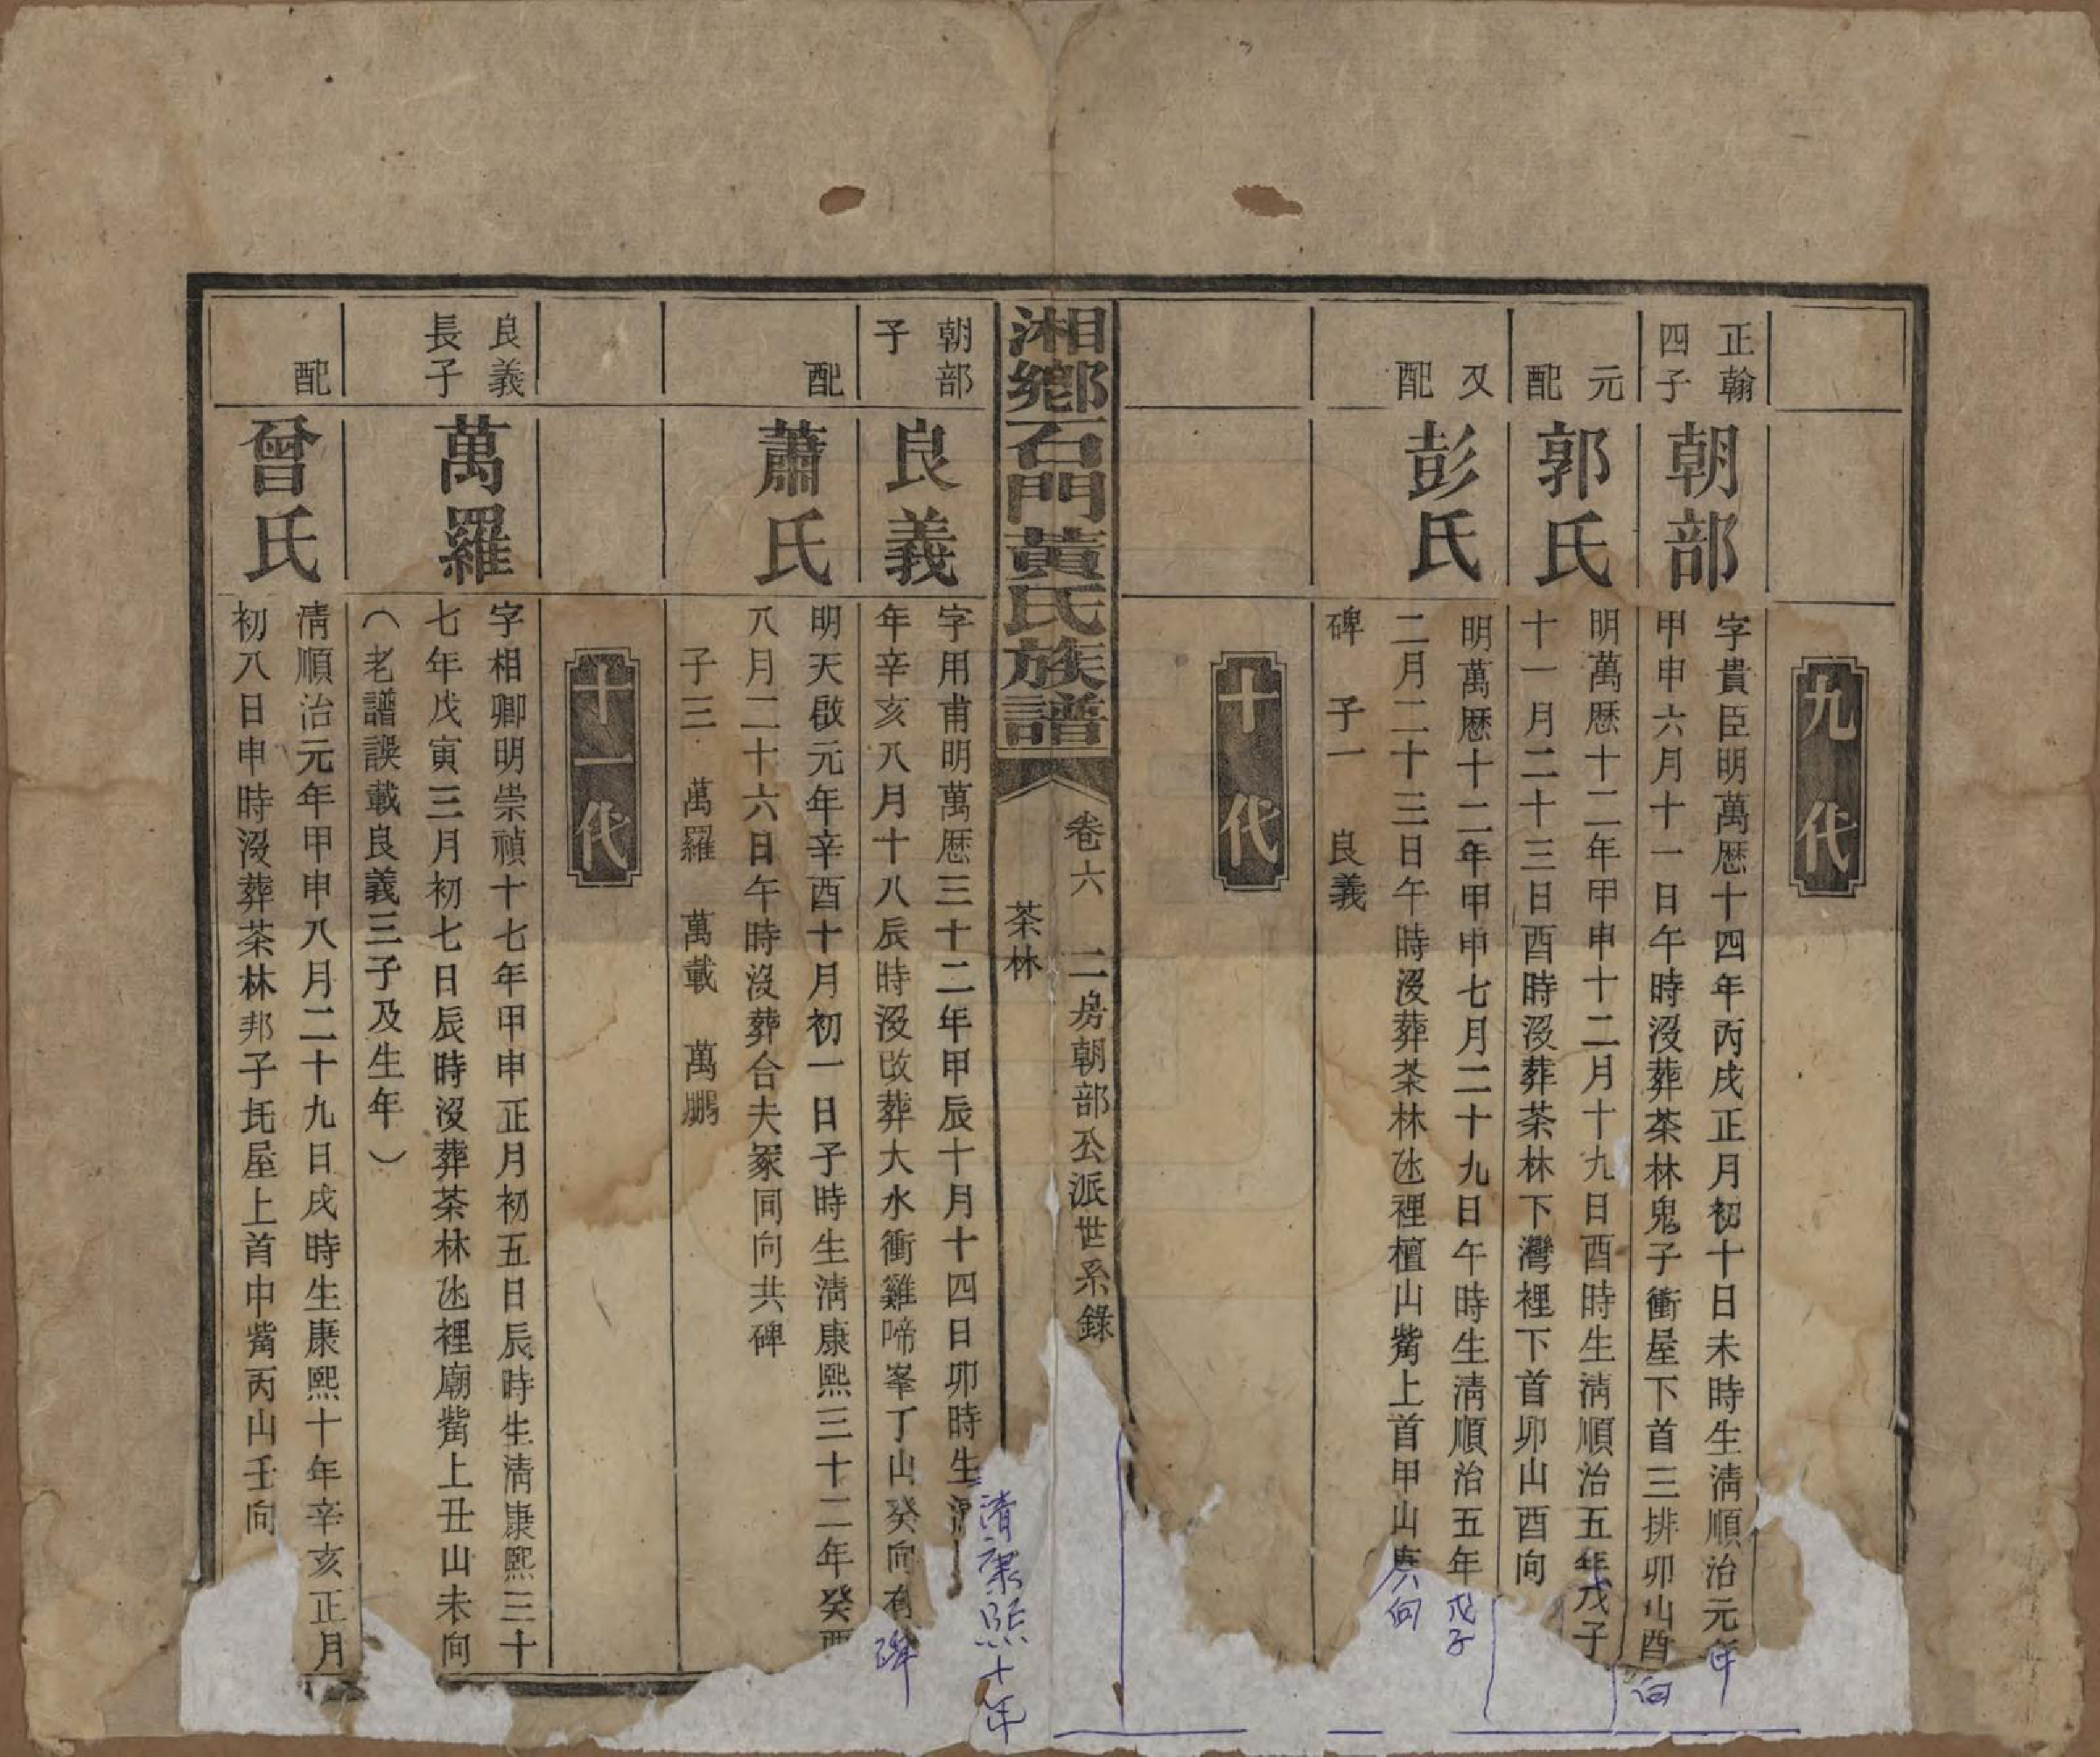 九代
正翰
四子
朝部
字貴臣明萬歷十四年丙戌正月初十日未時生淸順治元年
甲申六月十一日午時沒葬茶林鬼子衝屋下首三排卯山酉向
元
配
郭氏
明萬歷十二年甲申十二月十九日酉時生淸順治五年戊子
十一月二十三日酉時沒葬茶林下灣裡下首卯山酉向
又
配
彭氏
明萬歷十二年甲申七月二十九日午時生淸順治五年戊子
二月二十三日午時沒葬茶林氹裡檀山觜上首甲山庚向
碑 子一 良義
十代
湘鄉石門黃氏族譜
卷六 二房朝部公派世系錄
茶林
朝部
子
良義
字用甫明萬歷三十二年甲辰十月十四日卯時生清康熙十年
年辛亥八月十八辰時沒改葬大水衝雞啼峯丁山癸向有碑
配
蕭氏
明天啟元年辛酉十月初一日子時生淸康熙三十二年癸酉
八月二十六日午時沒葬合夫冢同向共碑
子三 萬羅 萬載 萬鵬
十一代
良義
長子
萬羅
字相卿明崇禎十七年甲申正月初五日辰時生淸康熙三十
七年戊寅三月初七日辰時沒葬茶林氹裡廟觜上丑山未向
（老譜誤載良義三子及生年）
配
曾氏
淸順治元年甲申八月二十九日戌時生康熙十年辛亥正月
初八日申時沒葬茶林邦子托屋上首中觜丙山壬向